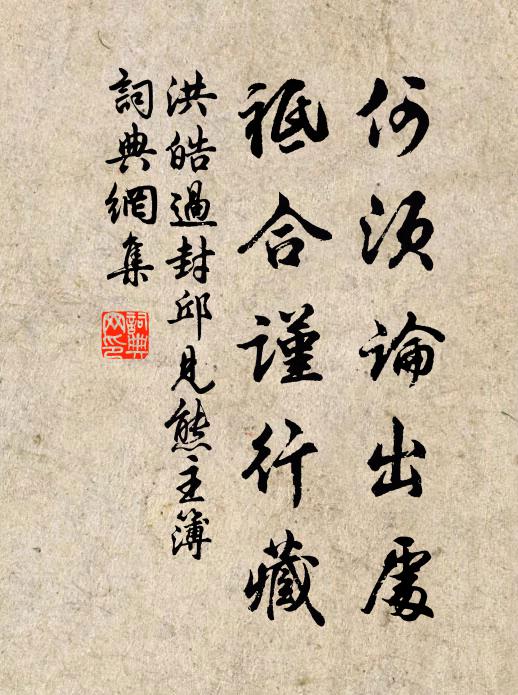 何須論出處
祗合謹行藏
洪皓過封邱見熊主簿
詞典網集
詞典
网印